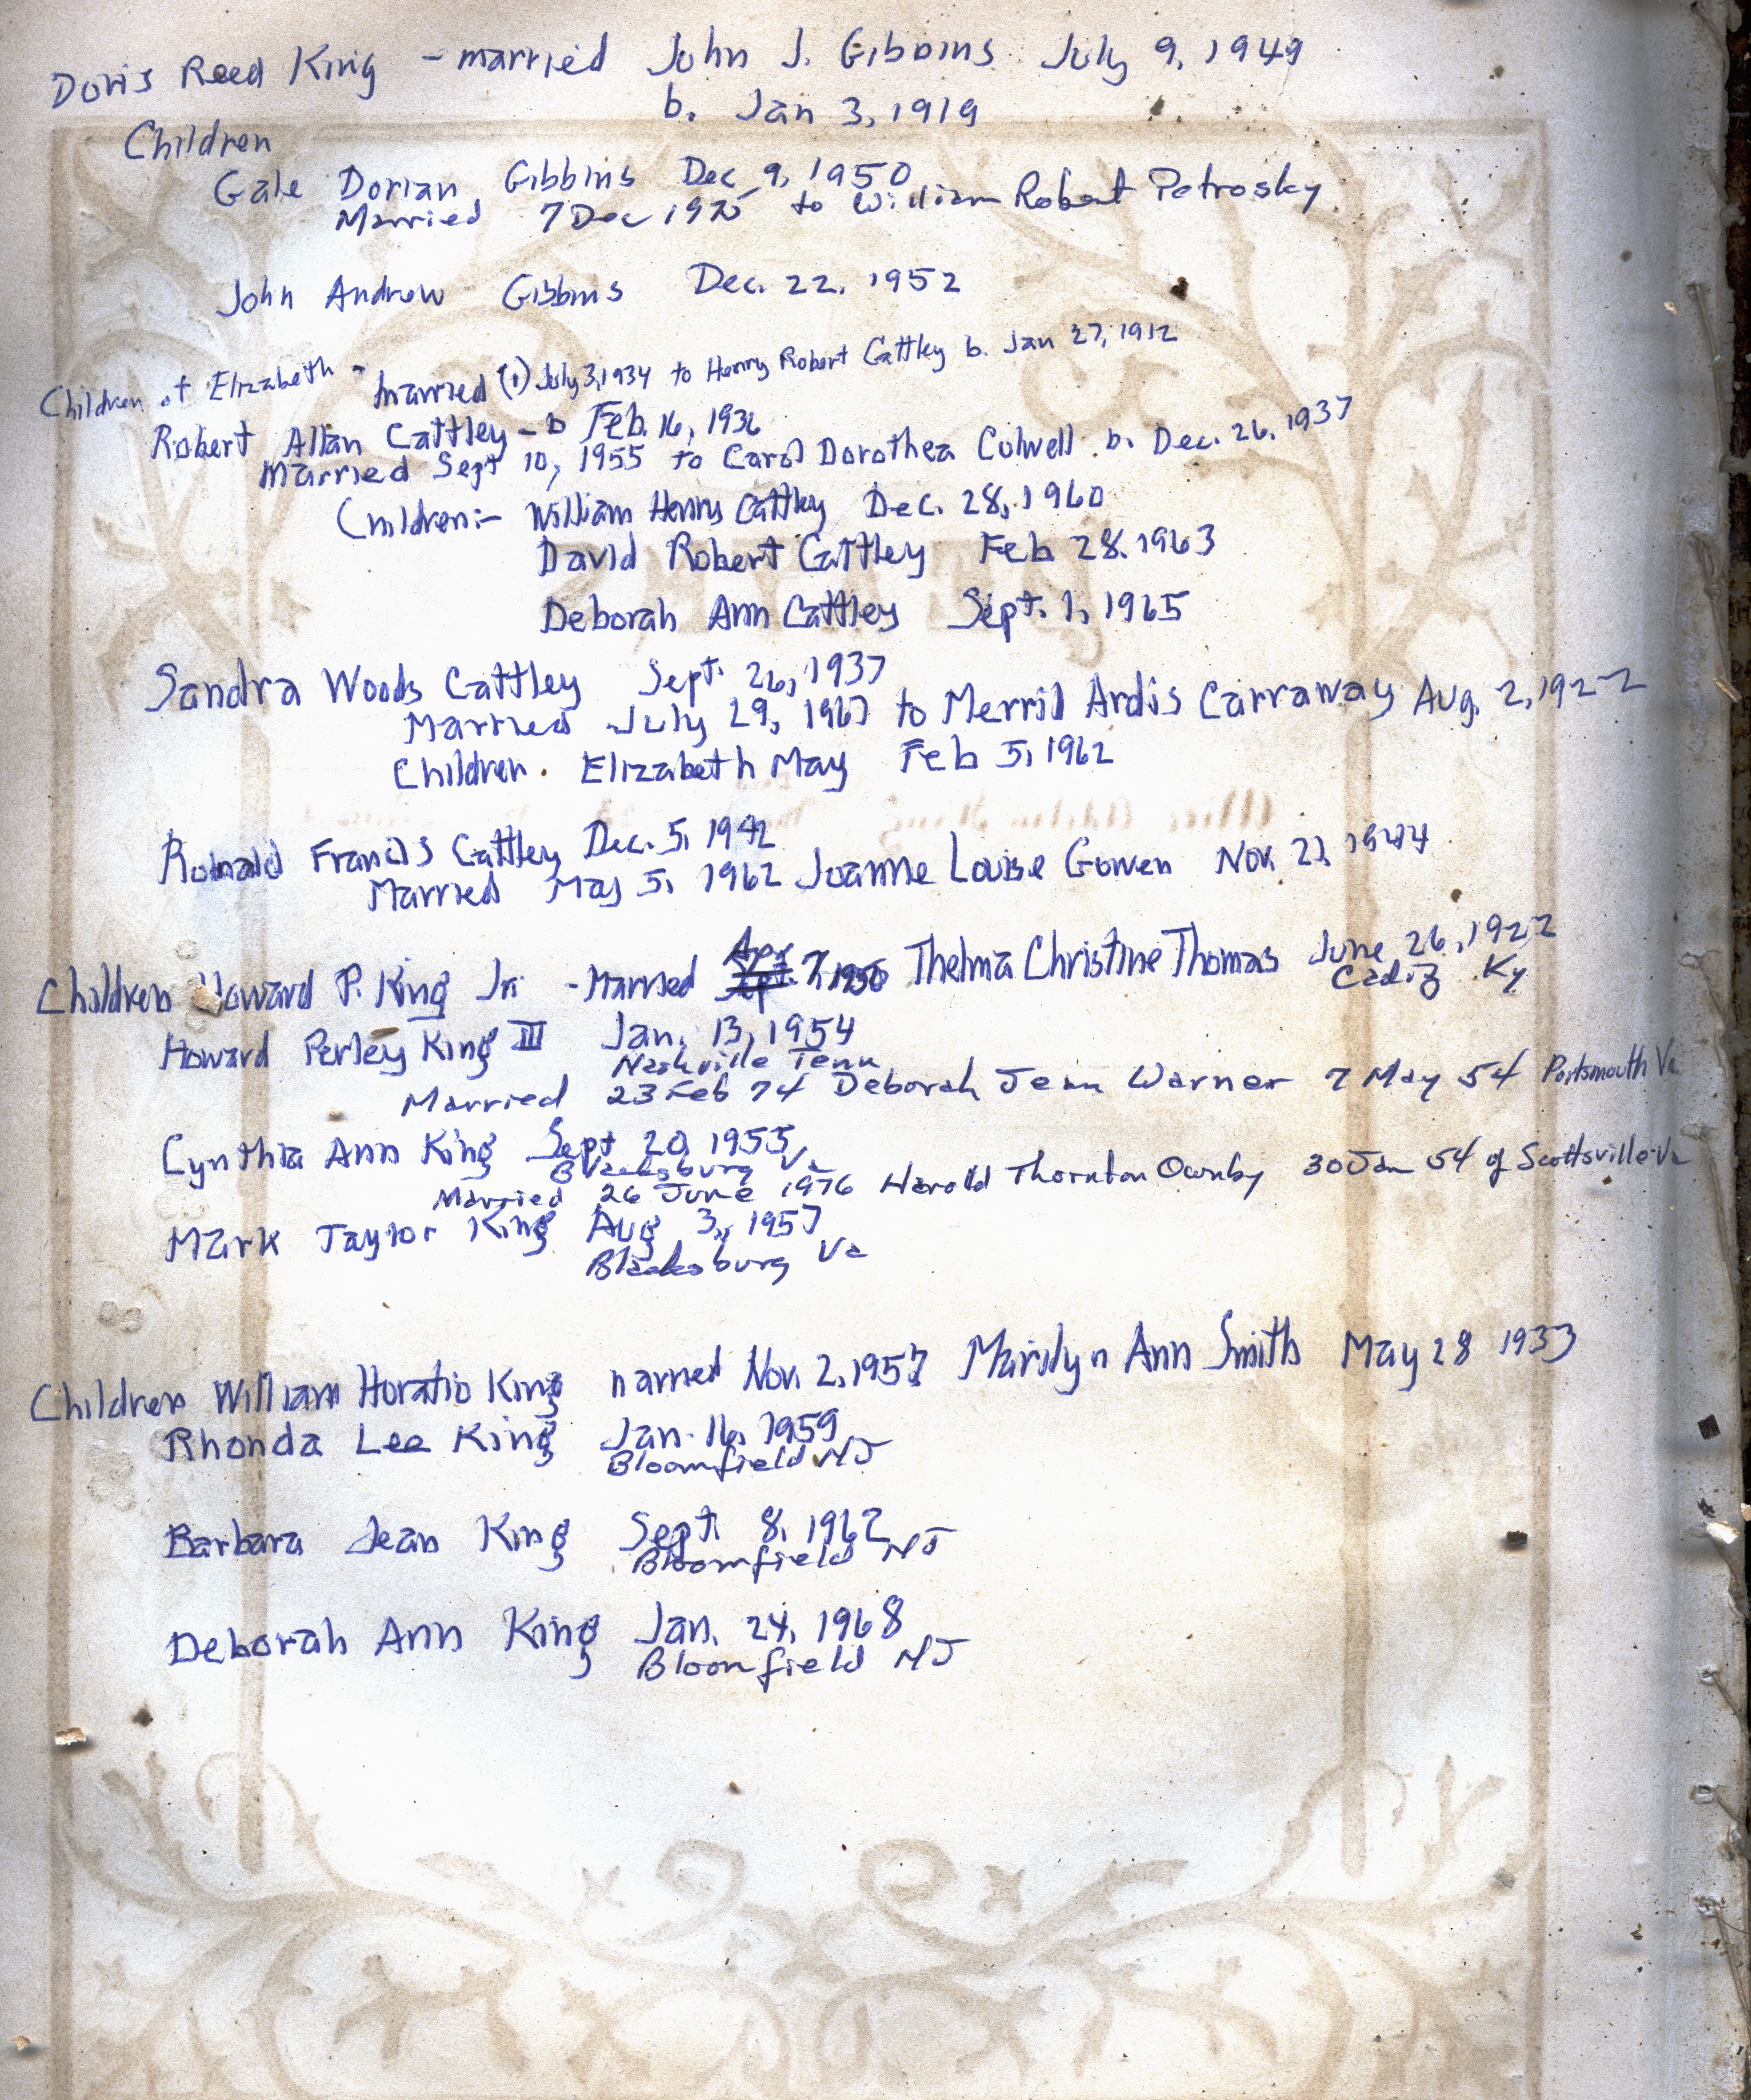 Doris Reed King - married John J. Gibbins July 9, 1949
b. Jan 3, 1919
Children
Gale Dorian Gibbins Dec 9, 1950
Married 7 Dec 1975 to William Robert Petrosky
John Andrew Gibbins Dec. 22. 1952
Children of Elizabeth - married (1) July 3, 1934 to Henry Robert Cattley b. Jan 27, 1912
Robert Allan Cattley - b Feb. 16, 1936
Married Sept 10, 1955 to Carol Dorothea Colwell b. Dec. 26, 1937
Children:- William Henry Cattley Dec. 28, 1960
David Robert Cattley Feb 28. 1963
Deborah Ann Cattley Sept. 1, 1965
Sandra Woods Cattley Sept. 26, 1937
Married July 29, 1967 to Merril Ardis Carraway Aug. 2, 1922
Children. Elizabeth May Feb 5, 1962
Ronald Francis Cattley Dec. 5, 1942
Married May 5, 1962 Joanne Louise Gowen Nov. 1944
Children Howard P. King Jr. - Married Apr 7, 1950 Thelma Christine Thomas June 26, 1922
Cadiz Ky
Howard Perley King III Jan. 13, 1954
Nashville Tenn
Married 23 Feb 74 Deborah Jean Warner 7 May 54 Portsmouth Va
Cynthia Ann King Sept 20, 1955
Blacksburg Va
Married 26 June 1976 Harold Thornton Ownby 30 Jan 54 of Scottsville Va
Mark Taylor King Aug 3, 1957
Blacksburg Va
Children William Horatio King married Nov. 2, 1957 Marilyn Ann Smith May 28 1933
Rhonda Lee King Jan. 16, 1959
Bloomfield NJ
Barbara Jean King Sept. 8, 1962
Bloomfield NJ
Deborah Ann King Jan. 24, 1968
Bloomfield NJ